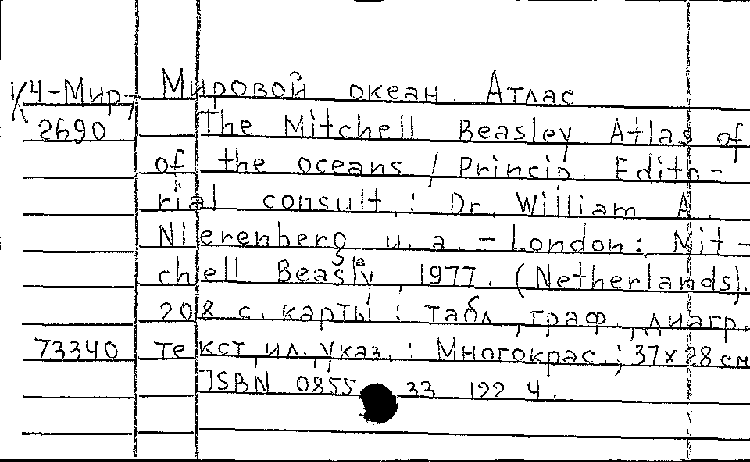 Ч-Мир- Мировой океан. Атлас
2690 The Mitchell Beasley Atlas of
of the oceans / Princip. Edito-
rial consult.: Dr. William A.
Nierenberg u. a. - London: Mit-
chell Beasly, 1977. (Netherlands).
208 с. карты : табл., граф., диагр.
73340 текст, ил., указ. : Многокрас.; 37х28 см
ISBN 0855 33 122 4.